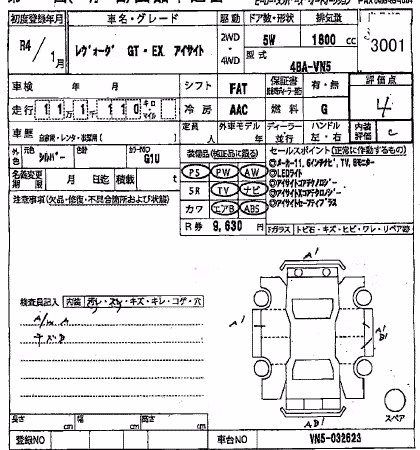 初度登録年月 車名・グレード 駆動 ドア数・形状 排気量
R4/1月 レヴォーグ GT・EX アイサイト 2WD・4WD 5W 1800cc 3001
型式 4BA-VN5
車検 年 月 シフト FAT 保証書 有・無 評価点
4
走行 11万1千110 キロ・マイル 冷房 AAC 燃料 G
車歴 自家用・レンタ・教習用( ) 定員 人 外車モデル 年 ディーラー・並行 ハンドル 左・右 内装評価 C
外色 元色 シルバー 色替 カラーNO G1U
名義変更期限 月 日迄 積載 t
装備品(純正品に限る) セールスポイント(正常に作動するもの)
PS PW AW
SR TV ナビ
カワ エアB ABS
R券 9,630 円
◎メーカー11.6インチナビ,TV,Bモニター
◎LEDライト
◎アイサイトコアテクノロジー
◎アイサイトXコアテクノロジー
◎アイサイトセーフティプラス
注意事項(欠品・修復・不具合箇所および状態)
Fガラス トビ石・キズ・ヒビ・ワレ・リペア跡
検査員記入 内装 汚レ・スレ・キズ・キレ・コゲ・穴
A/m A
キズB
A1
A1
A1
B1
AB1
スペア
長さ cm 幅 cm 高さ cm
登録NO 車台NO VN5-032623